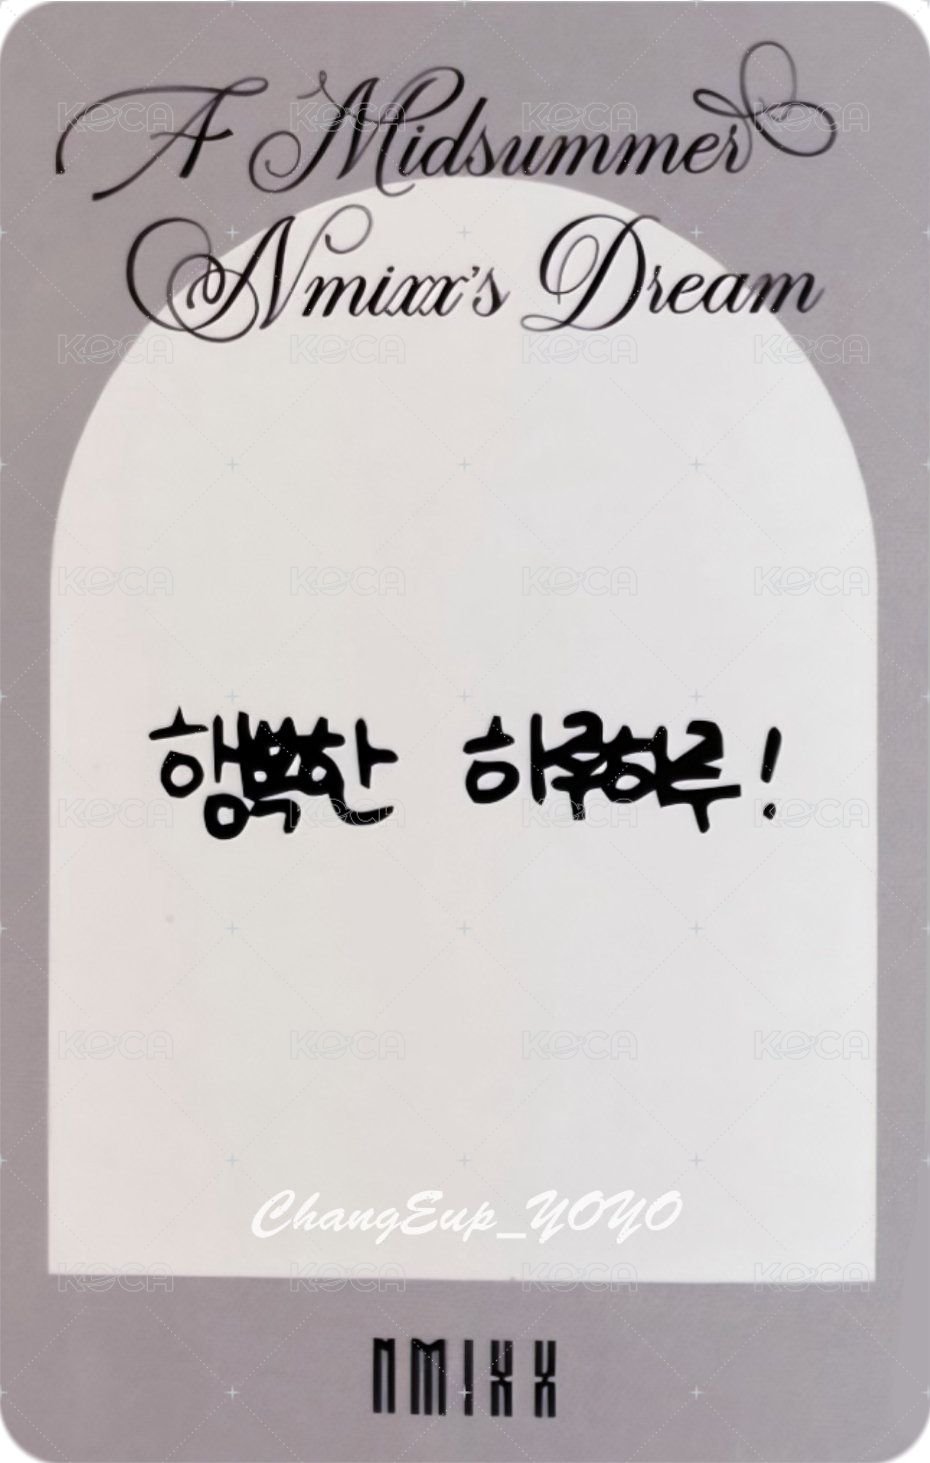 A Midsummer
Nmixx's Dream
행복한 하루하루!
ChangEup_YOYO
NMIXX
KOCA KOCA KOCA KOCA
KOCA KOCA KOCA KOCA
KOCA KOCA KOCA KOCA
KOCA KOCA KOCA KOCA
KOCA KOCA KOCA KOCA
KOCA KOCA KOCA KOCA